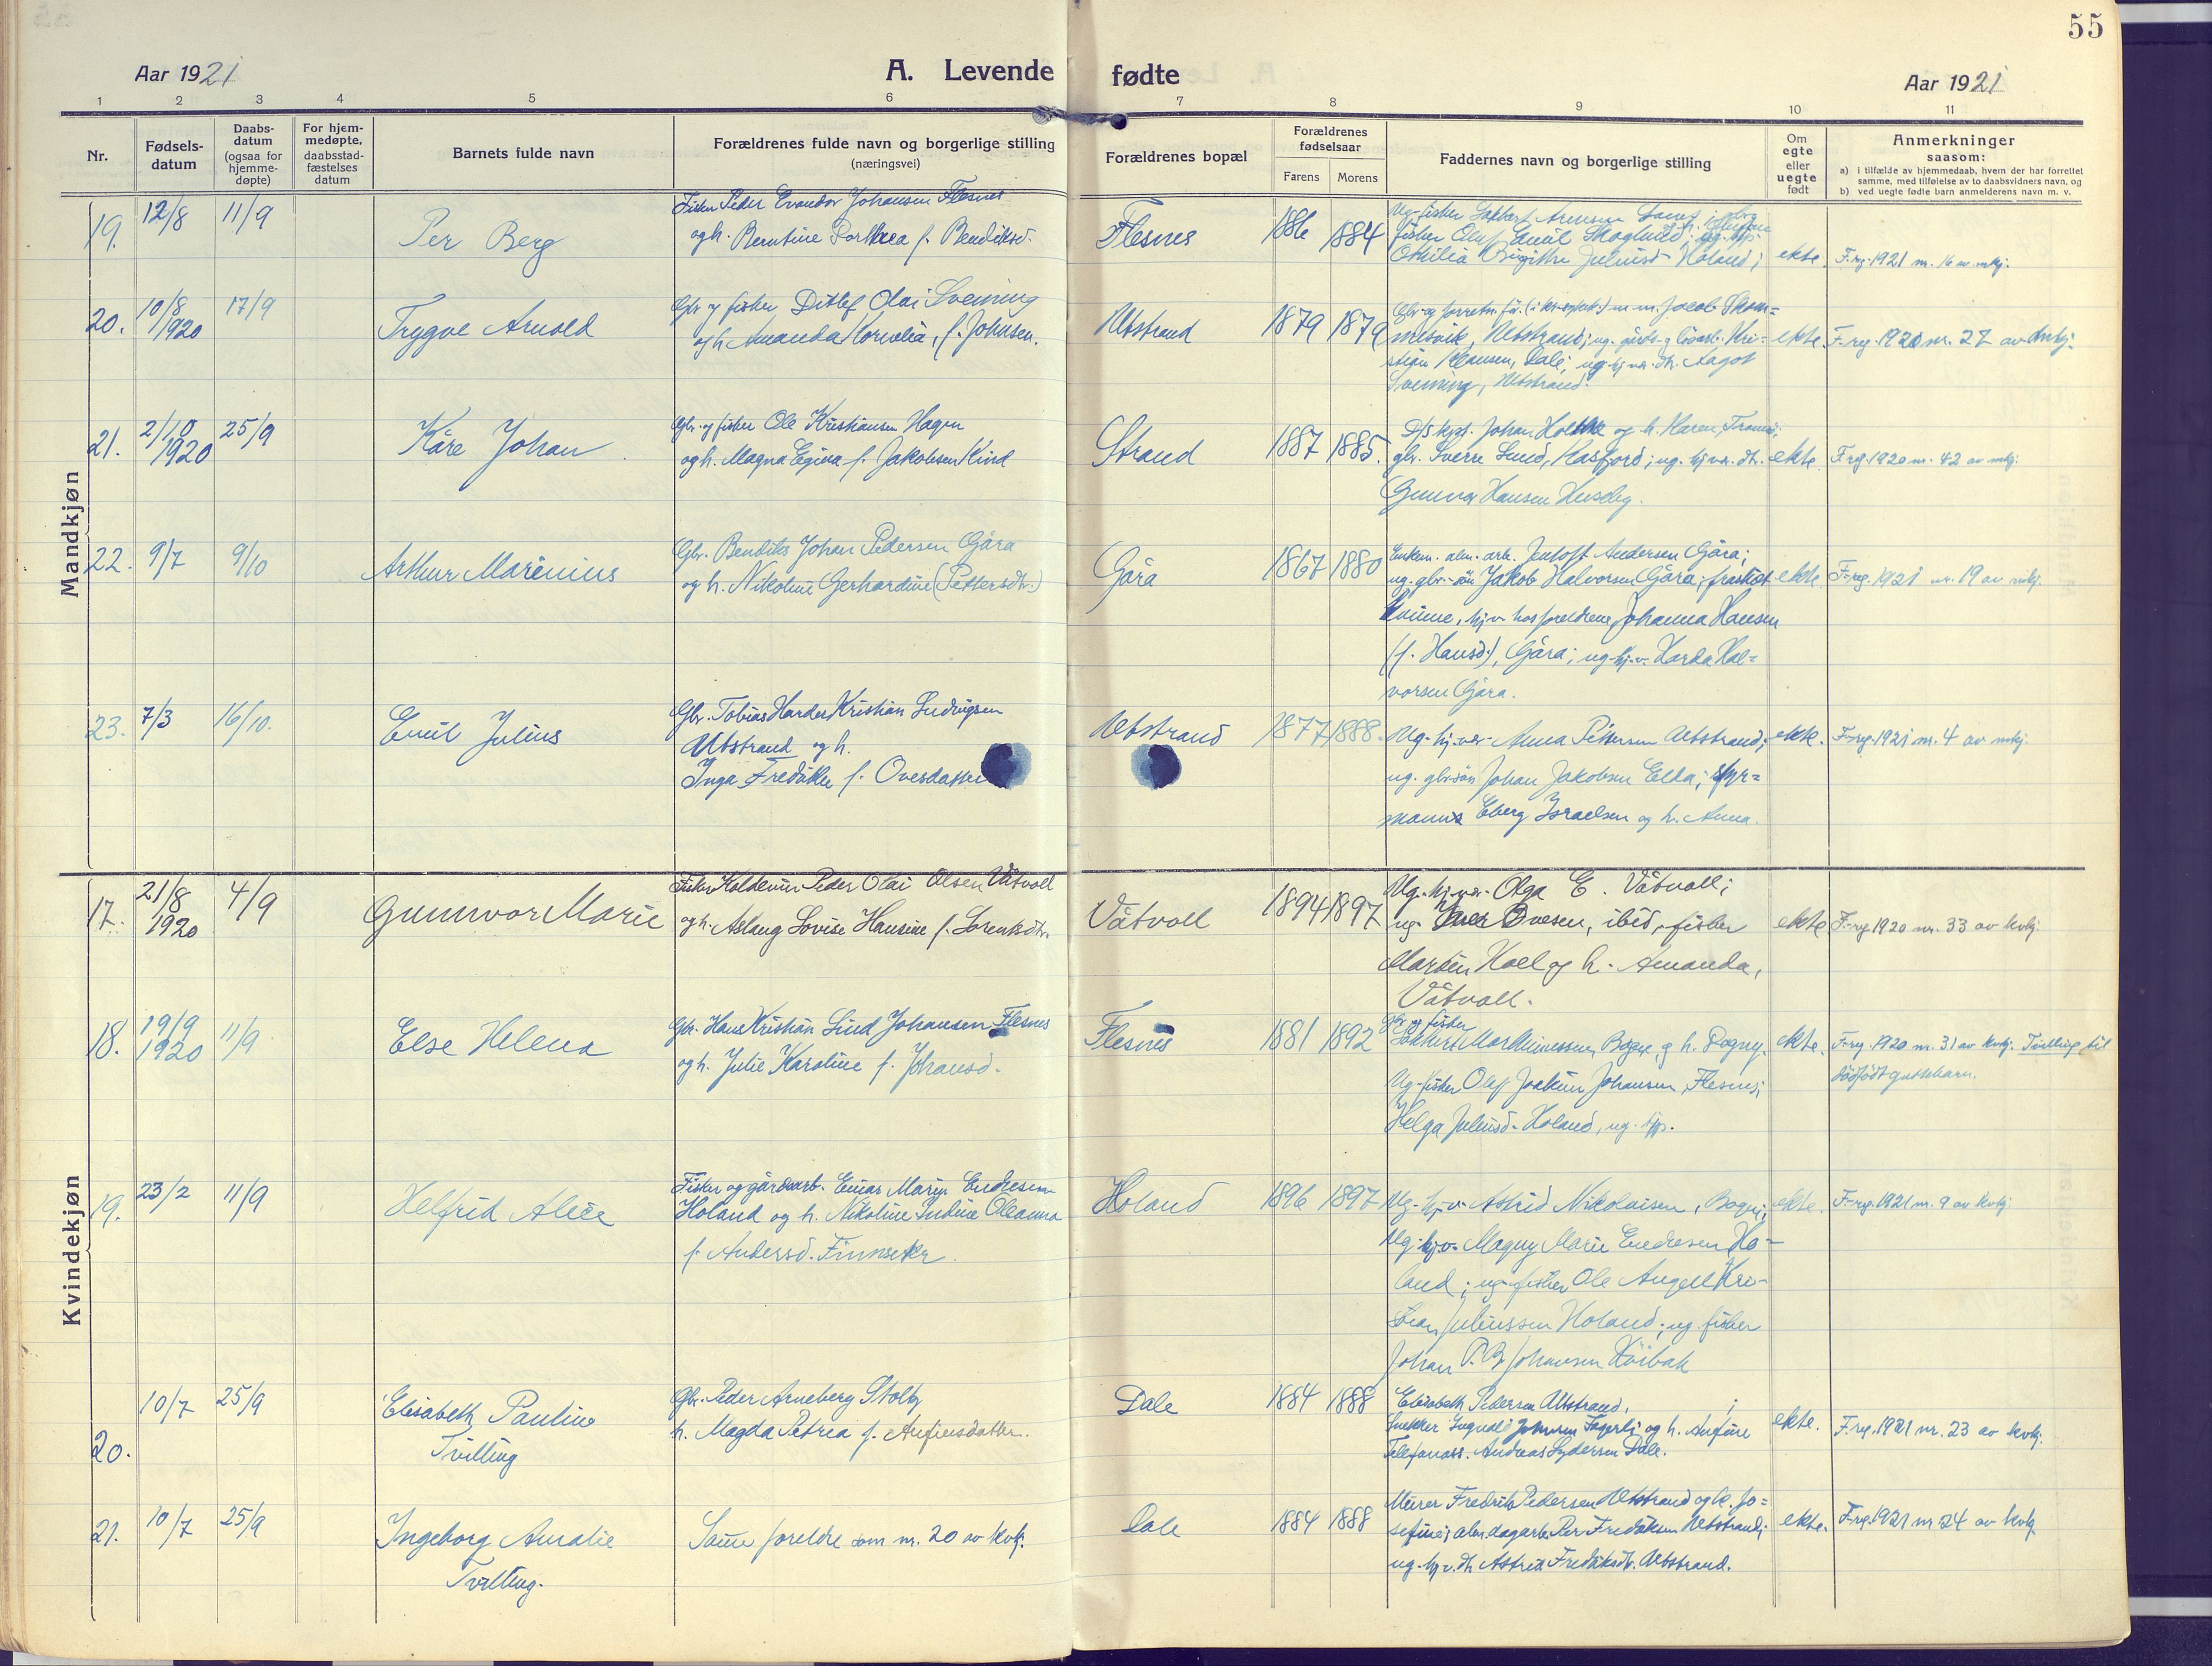 55
Aar 1921
A. Levende fødte
Aar 1921
1 2 3 4 5 6 7 8 9 10 11
Nr.
Fødsels-
datum
Daabs-
datum
(ogsaa for
hjemme-
døpte)
For hjem-
medøpte,
daabsstad-
fæstelses
datum
Barnets fulde navn
Forældrenes fulde navn og borgerlige stilling
(næringsvei)
Forældrenes bopæl
Forældrenes
fødselsaar
Farens Morens
Faddernes navn og borgerlige stilling
Om
egte
eller
uegte
født
Anmerkninger
saasom:
a) i tilfælde av hjemmedaab, hvem der har forrettet
samme, med tilføielse av to daabsvidners navn, og
b) ved uegte fødte barn anmelderens navn m. v.
Mandkjøn
19. 12/8 11/9
Per Berg
Fisker Peder Evandor Johansen Flesnes
og h. Berntine Dorthea f. Bendiksd.
Flesnes
1886 1884
fisker Oluf Emil Skoglund;
Othilia Birgitte Juliusd Holand;
ekte. F.rg. 1921 nr. 16 av mkj.
20. 10/8 1920 17/9
Trygve Arnold
Gbr. og fisker Ditlef Olai Svenning
og h Amanda Kornelia, f. Johnsen.
Alstrand
1879 1879
Svenning, Alstrand.
ekte. F-reg. 1920 nr. 27 av mkj.
21. 2/10 1920 25/9
Kåre Johan
Gbr. og fisker Ole Kristiansen Hagen
og h. Magna Egiva f. Jakobsen Kind
Strand
1887 1885.
D/S kpt. Johan Holthe og h. Karen, Tromsø;
gbr. Sverre Lund, Kasfjord; ug. hj.v. dt.
Gunvor Hansen Huseby.
ekte F.reg. 1920 nr. 42 av mkj.
22. 9/7 9/10
Arthur Marenius
Gbr. Bendiks Johan Pedersen Gåra
og h. Nikoline Gerhardine (Pettersdtr.)
Gåra
1867 1880
Enkem. alm. arb. Jentoft Andersen Gåra;
ug. gbr.-sön Jakob Halvorsen Gåra; fraskilt
kvinne, hj.v. hos foreldrene, Johanna Hansen
(f. Hansd.), Gåra; ug. hj.v. Harda Hal=
vorsen Gåra.
ekte. F-reg. 1921 nr. 19 av mkj.
23. 7/3 16/10.
Emil Julius
Gbr. Tobias Harder Kristian Ludvigsen
Alstrand og h.
Inga Fredrikke f. Ovesdatter
Alstrand
1877 1888.
Ug. hj.ver. Anna Pettersen Alstrand;
ug. gbr.sön Johan Jakobsen Elda; styr=
mann Eberg Israelsen og h. Anna.
ekte. F-reg. 1921 nr. 4 av mkj.
Kvindekjøn
17. 21/8 1920 4/9
Gunnvor Marie
Fisker Koldevin Peder Olai Olsen Våtvoll
og h. Aslaug Lovise Hansine f. Lorentsdtr.
Våtvoll
1894 1897
Ug. hj.ver. Olga E. Våtvoll;
ug. Ovesen, ibid, fisker
Martin Hoel og h. Amanda,
Våtvoll.
ekte F-reg 1920 nr. 33 av kvkj.
18. 19/9 1920 11/9
Else Helena
Gbr. Hans Kristian Lind Johansen Flesnes
og h. Julie Karoline f. Johansd.
Flesnes
1881 1892
gbr. og fisker
og h. Dagny.
Ug. fisker Olaf Joakim Johansen, Flesnes;
Helga Juliusd. Holand, ug. tjp.
ekte. F-reg. 1920 nr. 31 av kvkj. Tvilling til
dödfödt guttebarn.
19. 23/2 11/9
Helfrid Alice
Fisker og gårdsarb. Einar Marin Endresen
Holand og h. Nikoline Indine Oleanna
f. Andersd. Finnsæter.
Holand
1896 1897
Ug. hj.v. Astrid Nikolaisen, Bogen;
Ug. hj.v. Magny Marie Endresen Ho=
land; ug. fisker Ole Angell Kri-
stian Juliussen Holand; ug. fisker
Johan P. B. Johansen Röibak
ekte. F-reg. 1921 nr. 9 av kvkj.
20. 10/7 25/9
Elisabeth Pauline
Tvilling
Gbr. Peder Arneberg Stoltz
h. Magda Petria f. Anfinsdatter.
Dale
1884 1888
Elisabeth Pedersen Alstrand, ;
Snekker Ingvald Johnsen Fagerli og h. Anfine
Telefonass. Andreas Lydersen Dale.
ekte. F.reg. 1921 nr. 23 av kvkj.
21. 10/7 25/9
Ingeborg Amalie
Tvilling.
Same foreldre som nr. 20 av kvkj.
Dale
1884 1888
Murer Fredrik Pedersen Alstrand og h. Jo=
sefine; alm. dagarb. Per Fredriksen Alstrand;
ug. hj.v. dt. Astrid Fredriksdt. Alstrand.
ekte. F.reg. 1921 nr. 24 av kvkj.